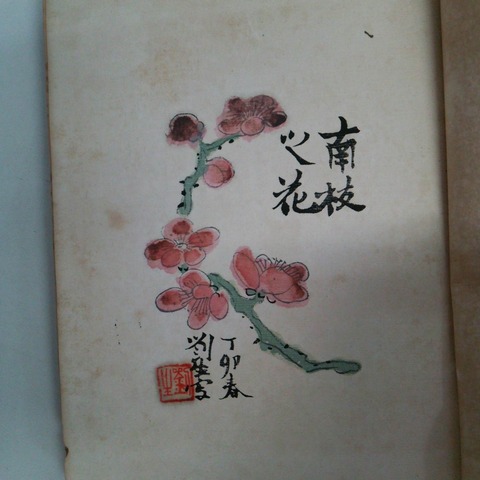 南枝
之花
丁卯春
劉